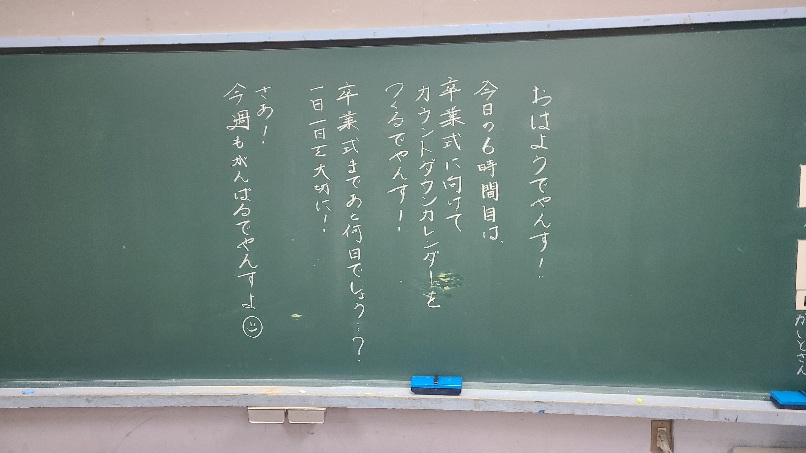 おはようでやんす!
今日の6時間目は、
卒業式に向けて
カウントダウンカレンダーを
つくるでやんす!
卒業式まであと何日でしょう…?
一日一日を大切に!
さあ!
今週もがんばるでやんすよ